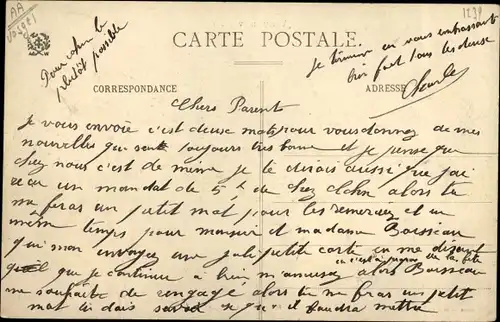 AA
Vosges
1239
Pour cohn le
plutôt possible
CARTE POSTALE.
je termine en vous embrassant
bien fort tous les deuse
Charles
CORRESPONDANCE
ADRESSE
Chers Parent
Je vous envoie c'est deuse mots pour vous donnez de mes
nouvelles qui sont toujours très bonne et je pense que
chez nous c'est de même je te dirais aussi que j'ai
reçu un mandat de 5f de chez clohn alors tu
me feras un petit mot pour les remerciez et en
même temps pour monsieur et madame Boisseau
qui m'on envoyez une jolie petite carte en me disant
en c'est à propos de la fête
que je continue à bien m'amusez alors Boisseau
me souhaite de rengagé alors tu me feras un petit
mot tu dois savoir se que il faudra mettre